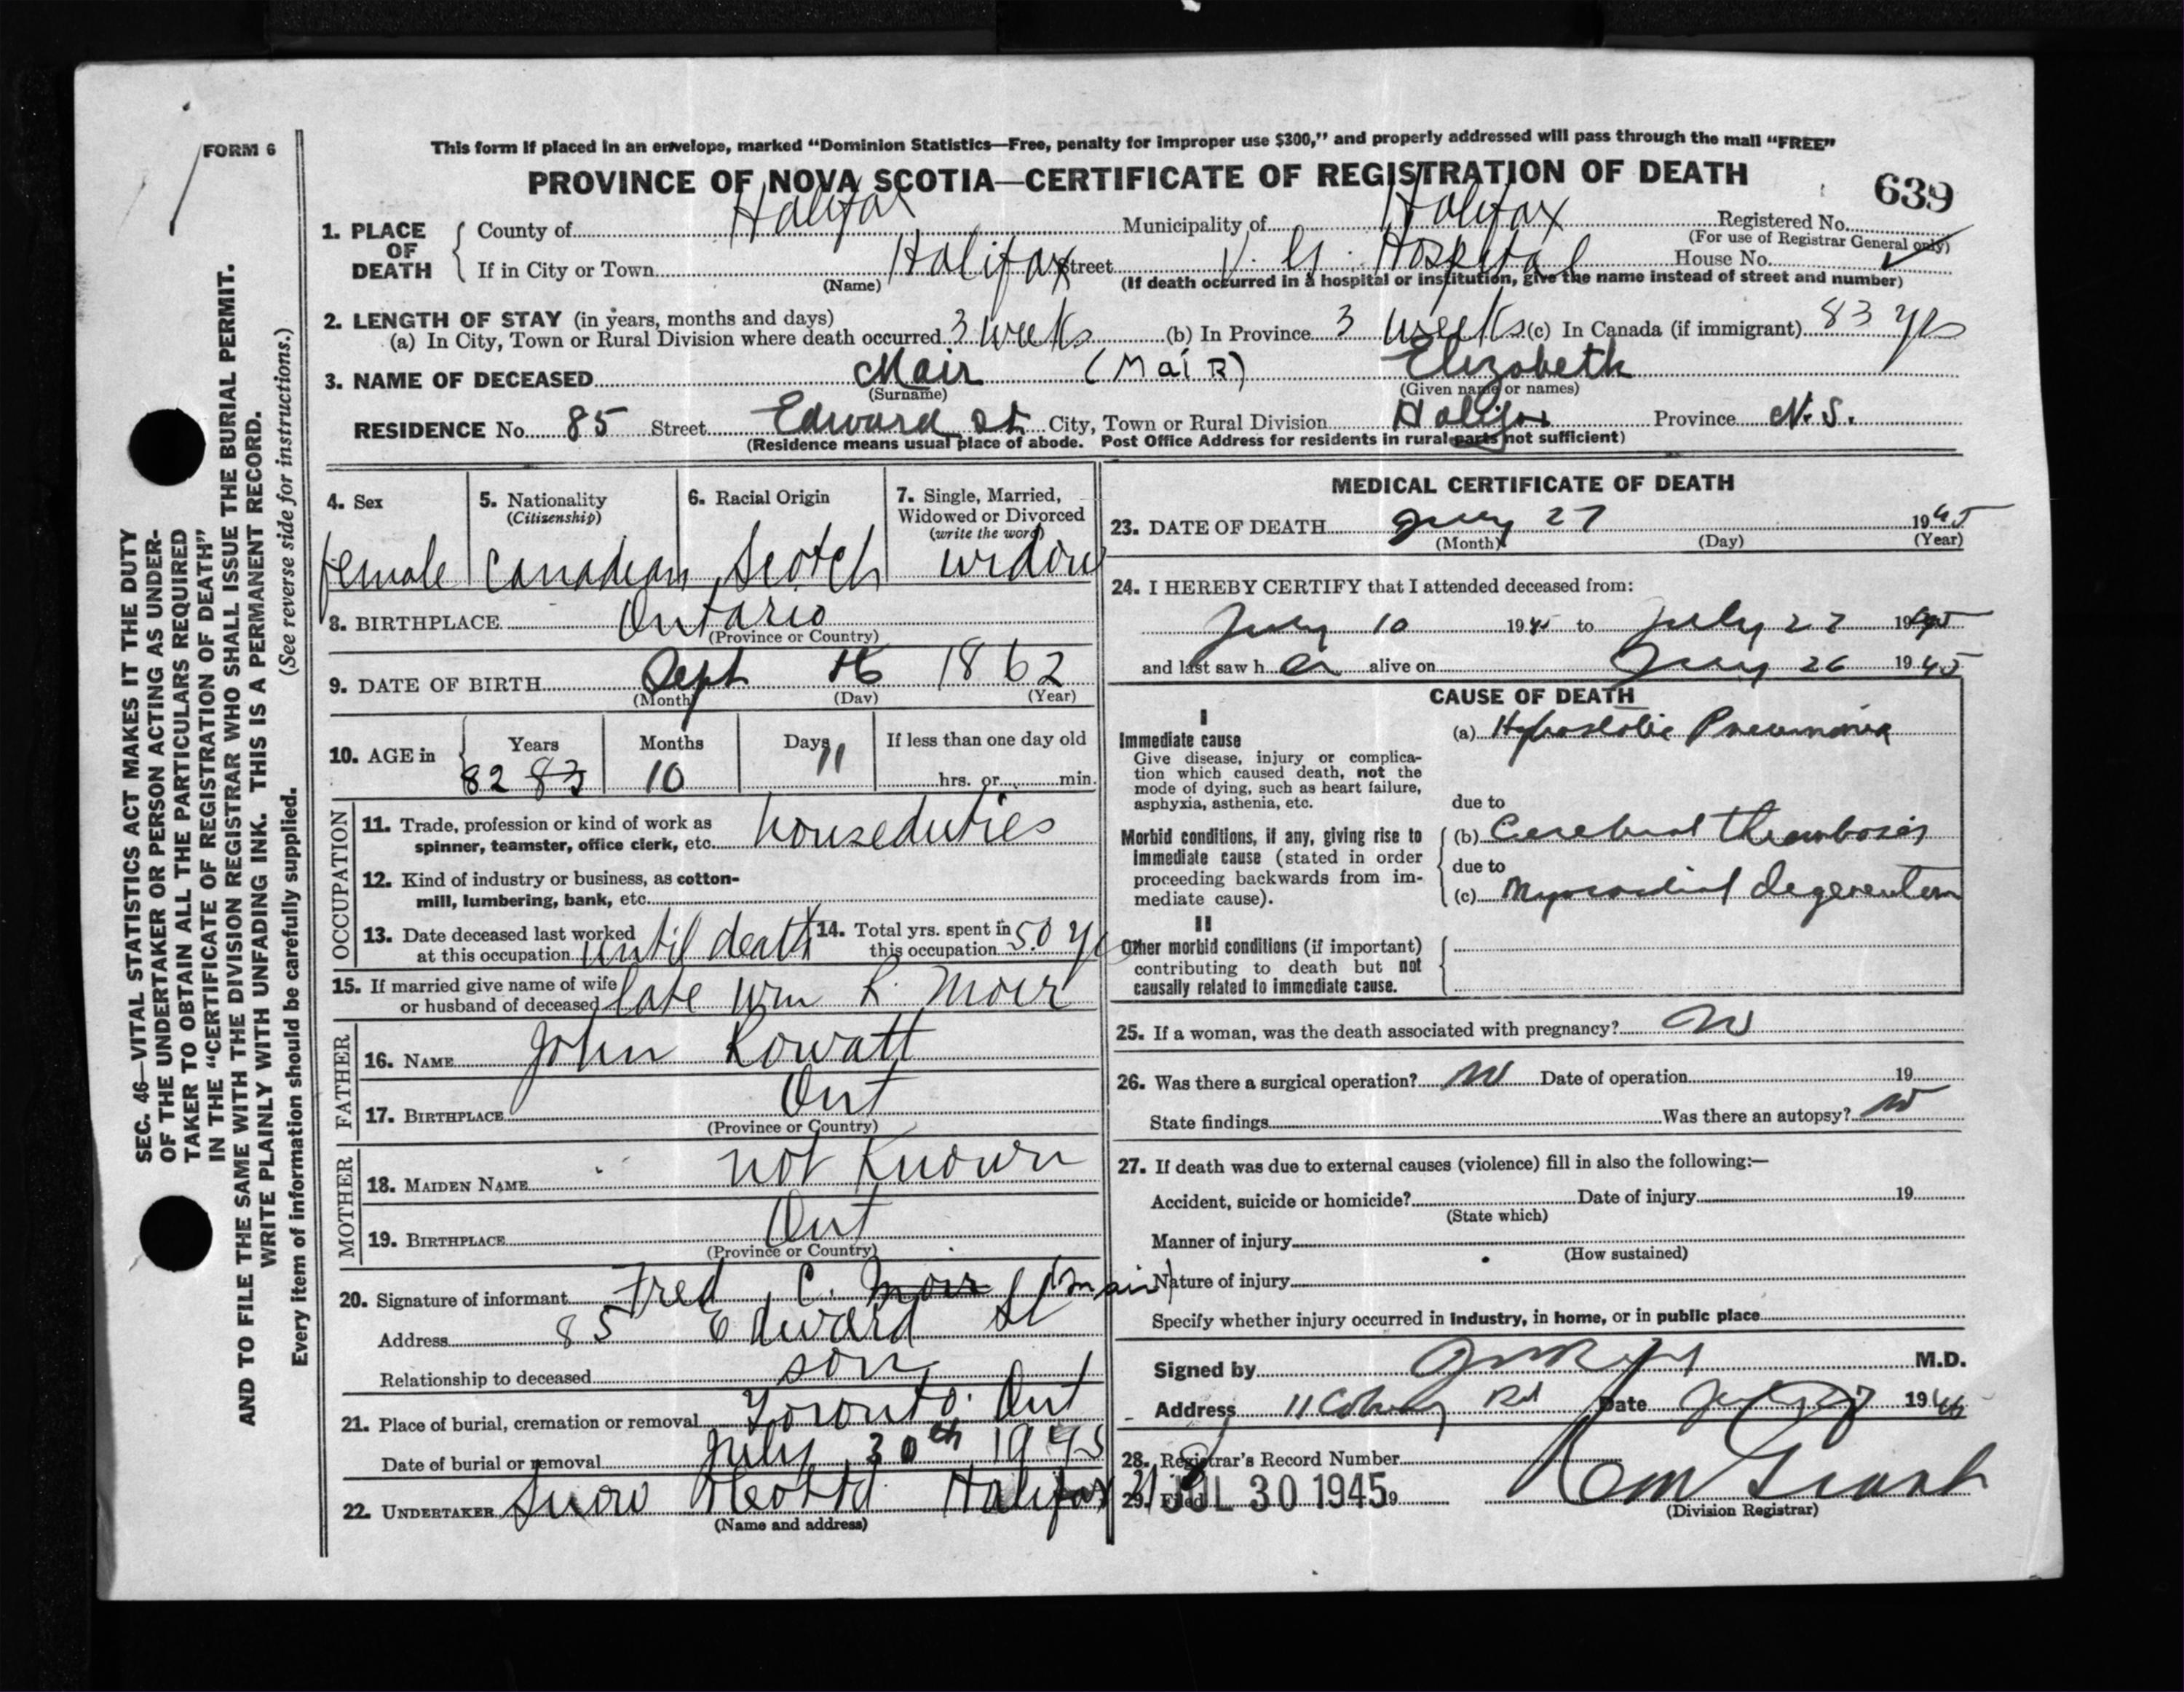 FORM 6
This form if placed in an envelope, marked “Dominion Statistics—Free, penalty for improper use $300,” and properly addressed will pass through the mail “FREE”
PROVINCE OF NOVA SCOTIA—CERTIFICATE OF REGISTRATION OF DEATH
639
1. PLACE OF DEATH
County of Halifax Municipality of Halifax Registered No.
(For use of Registrar General only)
If in City or Town Halifax Street V. G. Hospital House No.
(Name) (If death occurred in a hospital or institution, give the name instead of street and number)
2. LENGTH OF STAY (in years, months and days)
(a) In City, Town or Rural Division where death occurred 3 weeks (b) In Province 3 weeks (c) In Canada (if immigrant) 83 yrs
3. NAME OF DECEASED Mair (MaiR) Elizabeth
(Surname) (Given name or names)
RESIDENCE No. 85 Street Edward St City, Town or Rural Division Halifax Province N.S.
(Residence means usual place of abode. Post Office Address for residents in rural parts not sufficient)
SEC. 46—VITAL STATISTICS ACT MAKES IT THE DUTY
OF THE UNDERTAKER OR PERSON ACTING AS UNDER-
TAKER TO OBTAIN ALL THE PARTICULARS REQUIRED
IN THE “CERTIFICATE OF REGISTRATION OF DEATH”
AND TO FILE THE SAME WITH THE DIVISION REGISTRAR WHO SHALL ISSUE THE BURIAL PERMIT.
WRITE PLAINLY WITH UNFADING INK. THIS IS A PERMANENT RECORD.
Every item of information should be carefully supplied. (See reverse side for instructions.)
4. Sex
female
5. Nationality
(Citizenship)
Canadian
6. Racial Origin
Scotch
7. Single, Married,
Widowed or Divorced
(write the word)
widow
8. BIRTHPLACE Ontario
(Province or Country)
9. DATE OF BIRTH Sept 16 1862
(Month) (Day) (Year)
10. AGE in
Years Months Days If less than one day old
82 83 10 11 hrs. or min.
OCCUPATION
11. Trade, profession or kind of work as
spinner, teamster, office clerk, etc. houseduties
12. Kind of industry or business, as cotton-
mill, lumbering, bank, etc.
13. Date deceased last worked
at this occupation until death
14. Total yrs. spent in
this occupation 50 yrs
15. If married give name of wife
or husband of deceased late Wm R. Moir
FATHER
16. NAME John Rowatt
17. BIRTHPLACE Ont
(Province or Country)
MOTHER
18. MAIDEN NAME not Known
19. BIRTHPLACE Ont
(Province or Country)
20. Signature of informant Fred C. Moir (mair)
Address 85 Edward St
Relationship to deceased son
21. Place of burial, cremation or removal Toronto. Ont
Date of burial or removal July 30th 1945
22. UNDERTAKER Snow Halifax
(Name and address)
MEDICAL CERTIFICATE OF DEATH
23. DATE OF DEATH July 27 1945
(Month) (Day) (Year)
24. I HEREBY CERTIFY that I attended deceased from:
July 10 1945 to July 27 1945
and last saw her alive on July 26 1945
CAUSE OF DEATH
I
Immediate cause
Give disease, injury or complica-
tion which caused death, not the
mode of dying, such as heart failure,
asphyxia, asthenia, etc.
(a) Hypostatic Pneumonia
due to
Morbid conditions, if any, giving rise to
immediate cause (stated in order
proceeding backwards from im-
mediate cause).
(b) Cerebral thrombosis
due to
(c) Myocardial degeneration
II
Other morbid conditions (if important)
contributing to death but not
causally related to immediate cause.
25. If a woman, was the death associated with pregnancy? No
26. Was there a surgical operation? No Date of operation 19
State findings Was there an autopsy? No
27. If death was due to external causes (violence) fill in also the following:—
Accident, suicide or homicide? Date of injury 19
(State which)
Manner of injury
(How sustained)
Nature of injury
Specify whether injury occurred in industry, in home, or in public place
Signed by M.D.
Address 11 Rd Date July 27 1945
28. Registrar's Record Number
29. Filed JUL 30 1945 19
(Division Registrar)